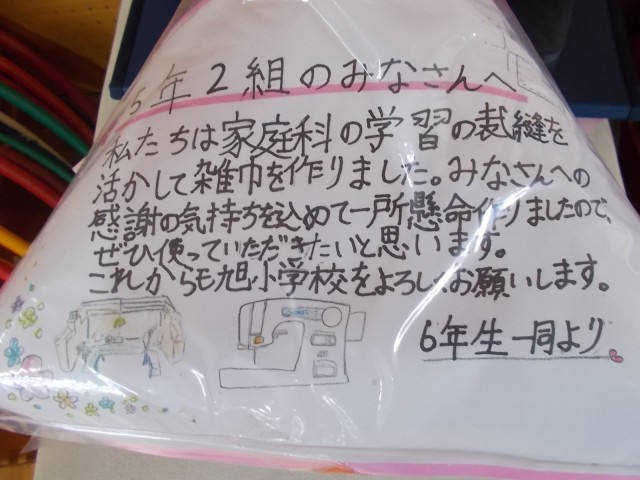 5年2組のみなさんへ
私たちは家庭科の学習の裁縫を
活かして雑巾を作りました。みなさんへの
感謝の気持ちを込めて一所懸命作りましたので、
ぜひ使っていただきたいと思います。
これからも旭小学校をよろしくお願いします。
6年生一同より